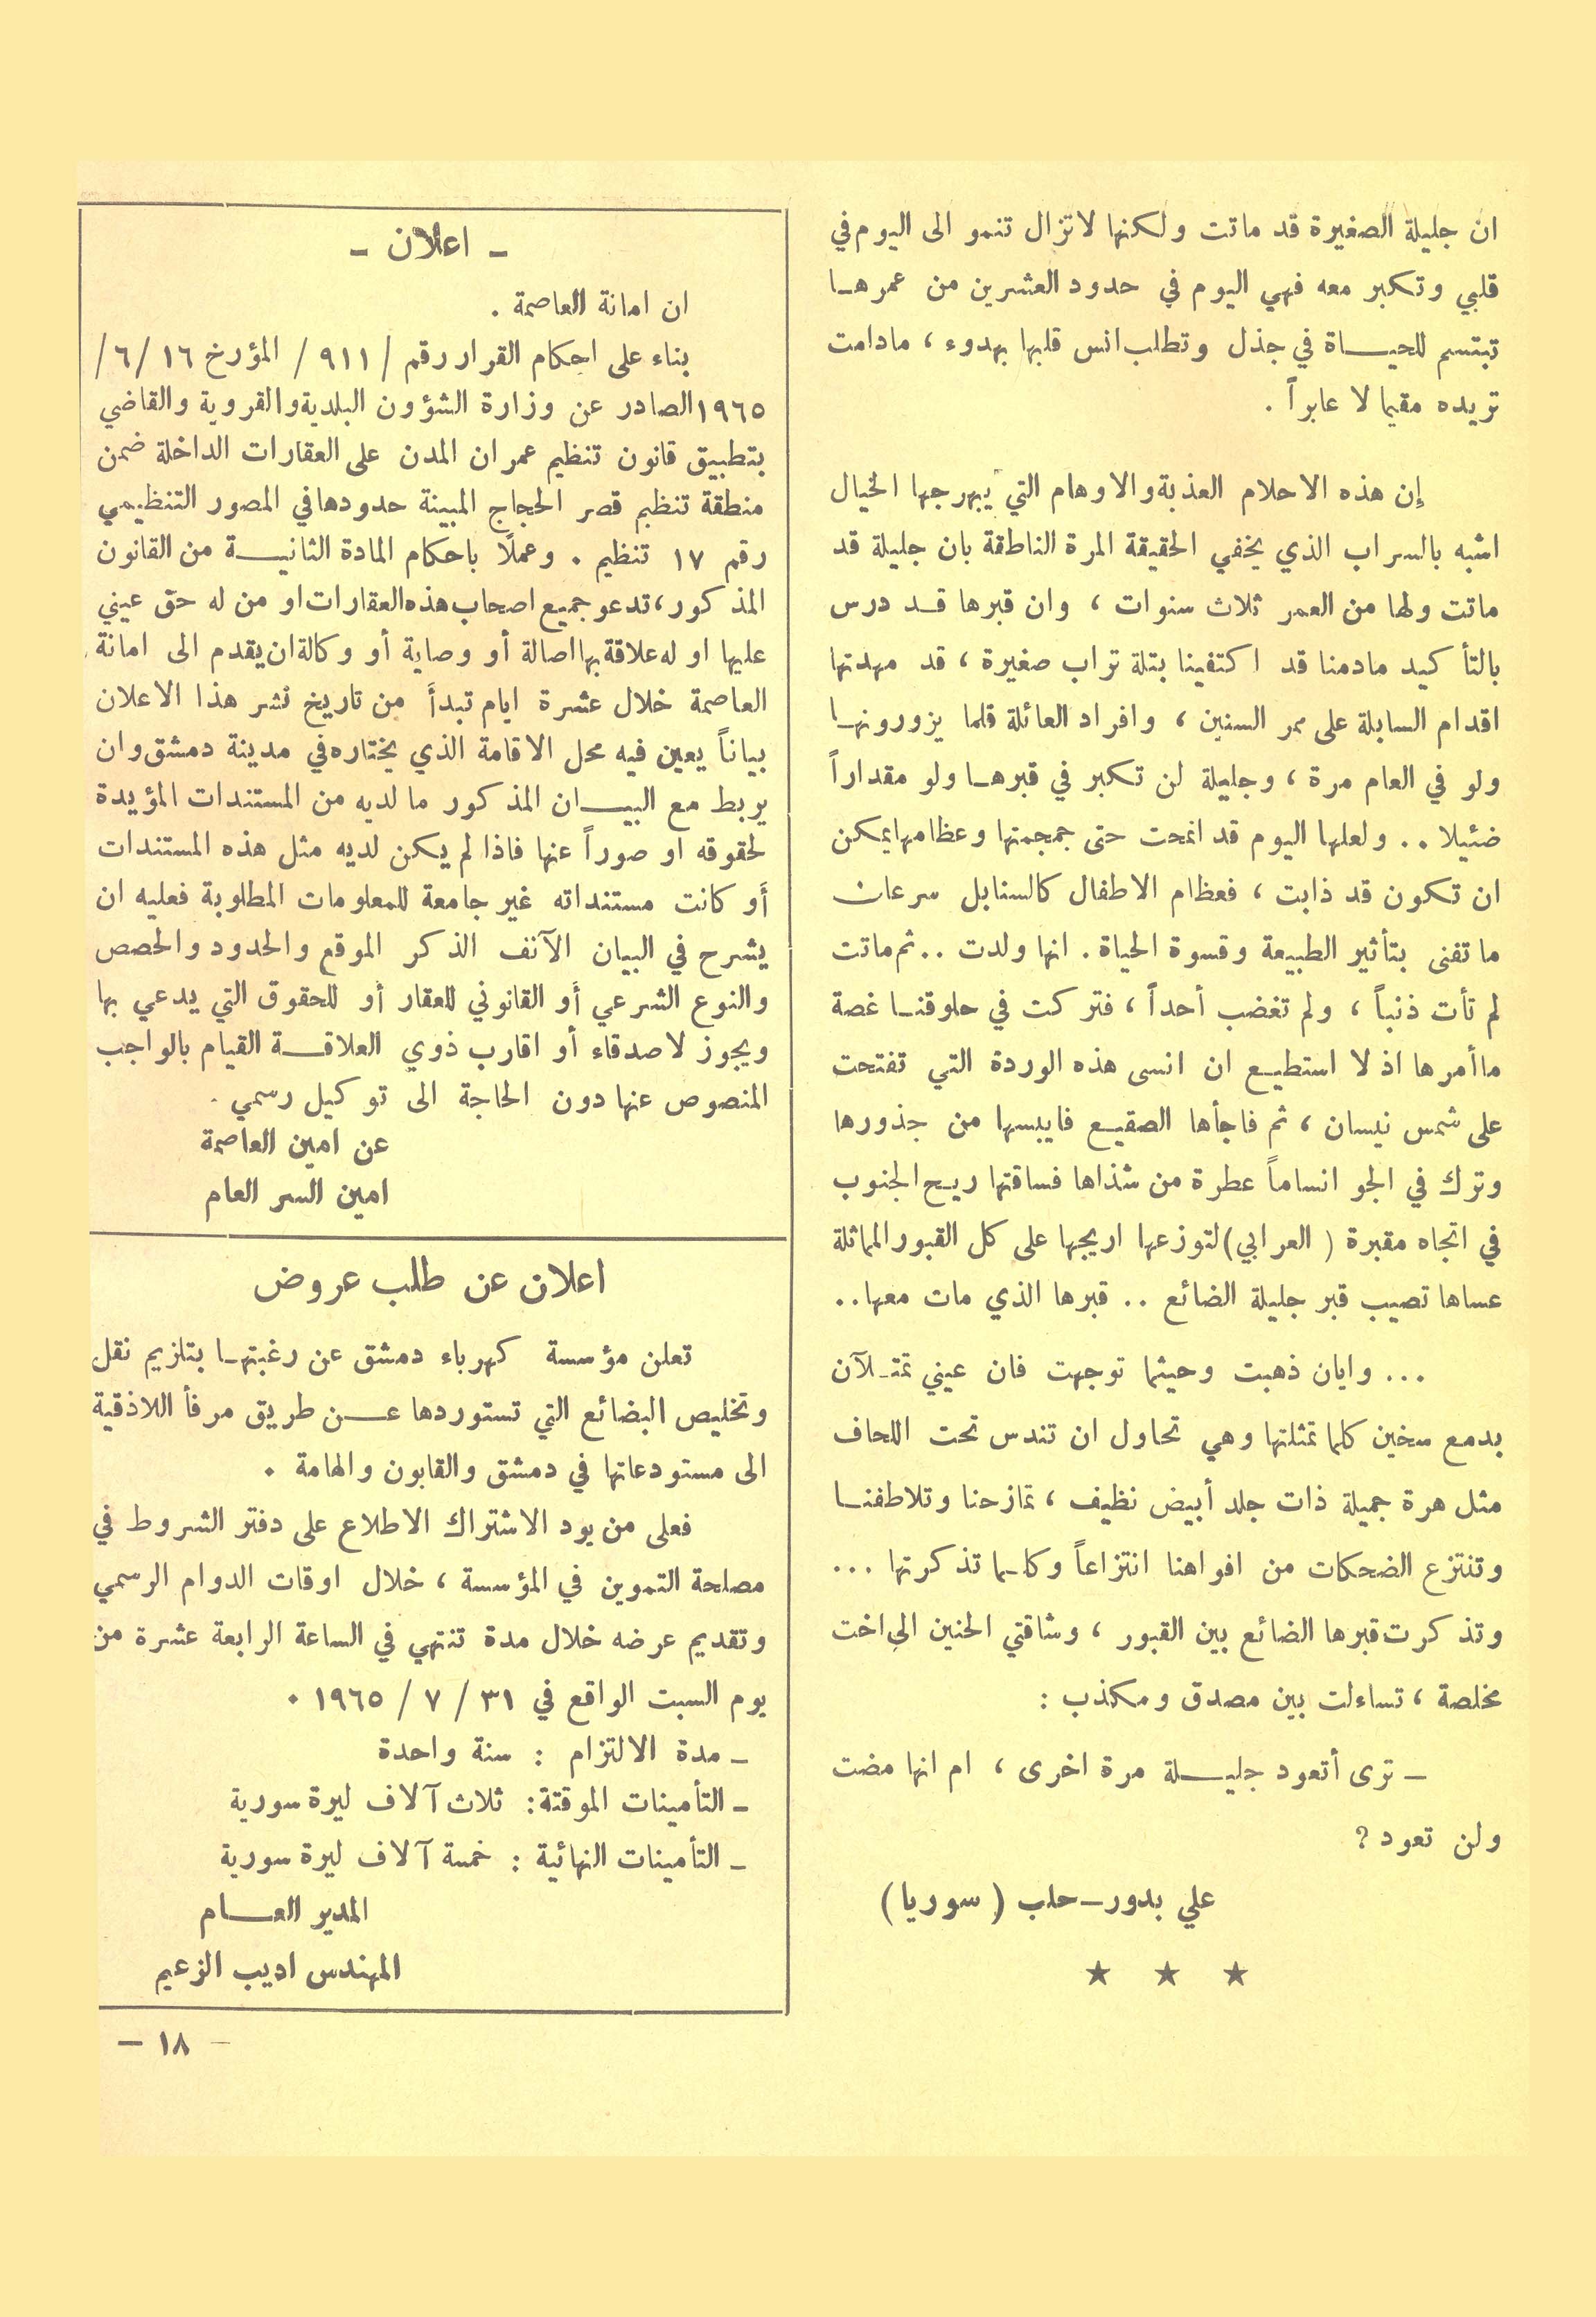 ان جليلة الصغيرة قد ماتت ولكنها لا تزال تنمو الى اليوم في
قلبي وتكبر معه فهي اليوم في حدود العشرين من عمرها
تبتسم للحياة في جذل وتطلب انس قلبها بهدوء ، مادامت
تريده مقيما لا عابراً .
إن هذه الاحلام العذبة والاوهام التي يبهرجها الخيال
اشبه بالسراب الذي يخفي الحقيقة المرة الناطقة بان جليلة قد
ماتت ولها من العمر ثلاث سنوات ، وان قبرها قد درس
بالتأكيد مادمنا قد اكتفينا بتلة تراب صغيرة ، قد مهدتها
اقدام السابلة على مر السنين ، وافراد العائلة قلما يزورونها
ولو في العام مرة ، وجليلة لن تكبر في قبرها ولو مقداراً
ضئيلا .. ولعلها اليوم قد انمحت حتى جمجمتها وعظامها يمكن
ان تكون قد ذابت ، فعظام الاطفال كالسنابل سرعان
ما تفنى بتأثير الطبيعة وقسوة الحياة . انها ولدت .. ثم ماتت
لم تأت ذنباً ، ولم تغضب أحداً ، فتركت في حلوقنا غصة
ما أمرها اذ لا استطيع ان انسى هذه الوردة التي تفتحت
على شمس نيسان ، ثم فاجأها الصقيع فايبسها من جذورها
وترك في الجو انساماً عطرة من شذاها فساقتها ريح الجنوب
في اتجاه مقبرة ( العرابي ) لتوزعها اريجها على كل القبور المماثلة
عساها تصيب قبر جليلة الضائع .. قبرها الذي مات معها ..
... وايان ذهبت وحيثما توجهت فان عيني تمتلآن
بدمع سخين كلما تمثلتها وهي تحاول ان تندس تحت اللحاف
مثل هرة جميلة ذات جلد أبيض نظيف ، تمازحنا وتلاطفنا
وتنتزع الضحكات من افواهنا انتزاعاً وكلما تذكرتها ...
وتذكرت قبرها الضائع بين القبور ، وشاقتي الحنين الى اخت
مخلصة ، تساءلت بين مصدق ومكذب :
ـ ترى أتعود جليلة مرة اخرى ، ام انها مضت
ولن تعود ؟
علي بدور ـ حلب ( سوريا )
★ ★ ★
ـ اعلان ـ
ان امانة العاصمة .
بناء على احكام القرار رقم / ٩١١ / المؤرخ ١٦ / ٦ /
١٩٦٥ الصادر عن وزارة الشؤون البلدية والقروية والقاضي
بتطبيق قانون تنظيم عمران المدن على العقارات الداخلة ضمن
منطقة تنظيم قصر الحجاج المبينة حدودها في المصور التنظيمي
رقم ١٧ تنظيم . وعملًا باحكام المادة الثانية من القانون
المذكور ، تدعو جميع اصحاب هذه العقارات او من له حق عيني
عليها او له علاقة بها اصالة أو وصاية أو وكالة ان يقدم الى امانة
العاصمة خلال عشرة ايام تبدأ من تاريخ نشر هذا الاعلان
بياناً يعين فيه محل الاقامة الذي يختاره في مدينة دمشق وان
يربط مع البيان المذكور ما لديه من المستندات المؤيدة
لحقوقه او صوراً عنها فاذا لم يكن لديه مثل هذه المستندات
أو كانت مستنداته غير جامعة للمعلومات المطلوبة فعليه ان
يشرح في البيان الآنف الذكر الموقع والحدود والحصص
والنوع الشرعي أو القانوني للعقار أو للحقوق التي يدعي بها
ويجوز لاصدقاء أو اقارب ذوي العلاقة القيام بالواجب
المنصوص عنها دون الحاجة الى توكيل رسمي .
عن امين العاصمة
امين السر العام
اعلان عن طلب عروض
تعلن مؤسسة كهرباء دمشق عن رغبتها بتلزيم نقل
وتخليص البضائع التي تستوردها عن طريق مرفأ اللاذقية
الى مستودعاتها في دمشق والقابون والهامة .
فعلى من يود الاشتراك الاطلاع على دفتر الشروط في
مصلحة التموين في المؤسسة ، خلال اوقات الدوام الرسمي
وتقديم عرضه خلال مدة تنتهي في الساعة الرابعة عشرة من
يوم السبت الواقع في ٣١ / ٧ / ١٩٦٥ .
ـ مدة الالتزام : سنة واحدة
ـ التأمينات الموقتة : ثلاث آلاف ليرة سورية
ـ التأمينات النهائية : خمسة آلاف ليرة سورية
المدير العام
المهندس اديب الزعيم
ـ ١٨ ـ